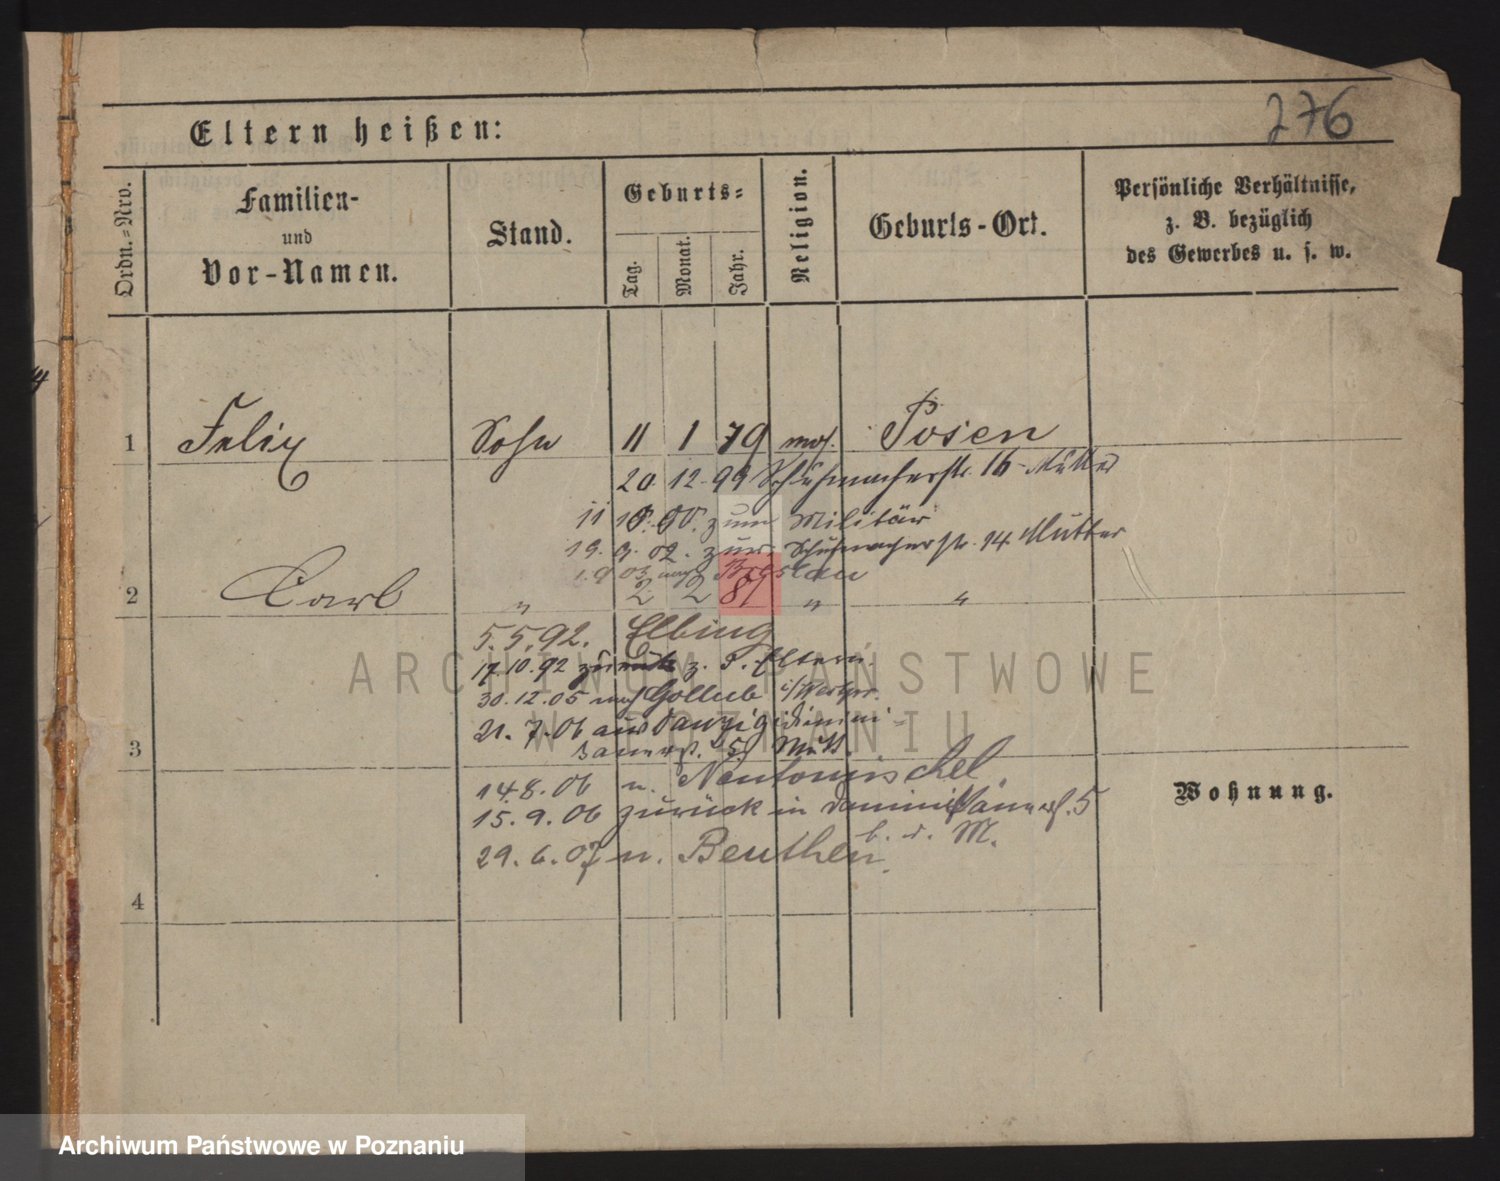 276
Eltern heißen:
Ordn.=Nro.
Familien- und Vor-Namen.
Stand.
Geburts=
Tag.
Monat.
Jahr.
Religion.
Geburts-Ort.
Persönliche Verhältnisse,
z. B. bezüglich
des Gewerbes u. s. w.
1 Felix Sohn 11 1 79 mos. Posen
20. 12. 99 Schuhmacherstr. 16 Mutter
11 10. 00. zum Militär
19. 9. 02. zur. Schuhmacherstr. 14 Mutter
1. 9 03 nach Breslau
2 Carl " 2 2 81 " "
5. 5. 92. Elbing
17. 10. 92 zurück z. d. Eltern
30. 12. 05 nach Gollub
21. 7. 06 aus Danzig
3
14. 8. 06 n. Neutomischel
15. 9. 06 zurück in 5
29. 6. 07 n. Beuthen
4
Wohnung.
ARCHIWUM PAŃSTWOWE
W POZNANIU
Archiwum Państwowe w Poznaniu